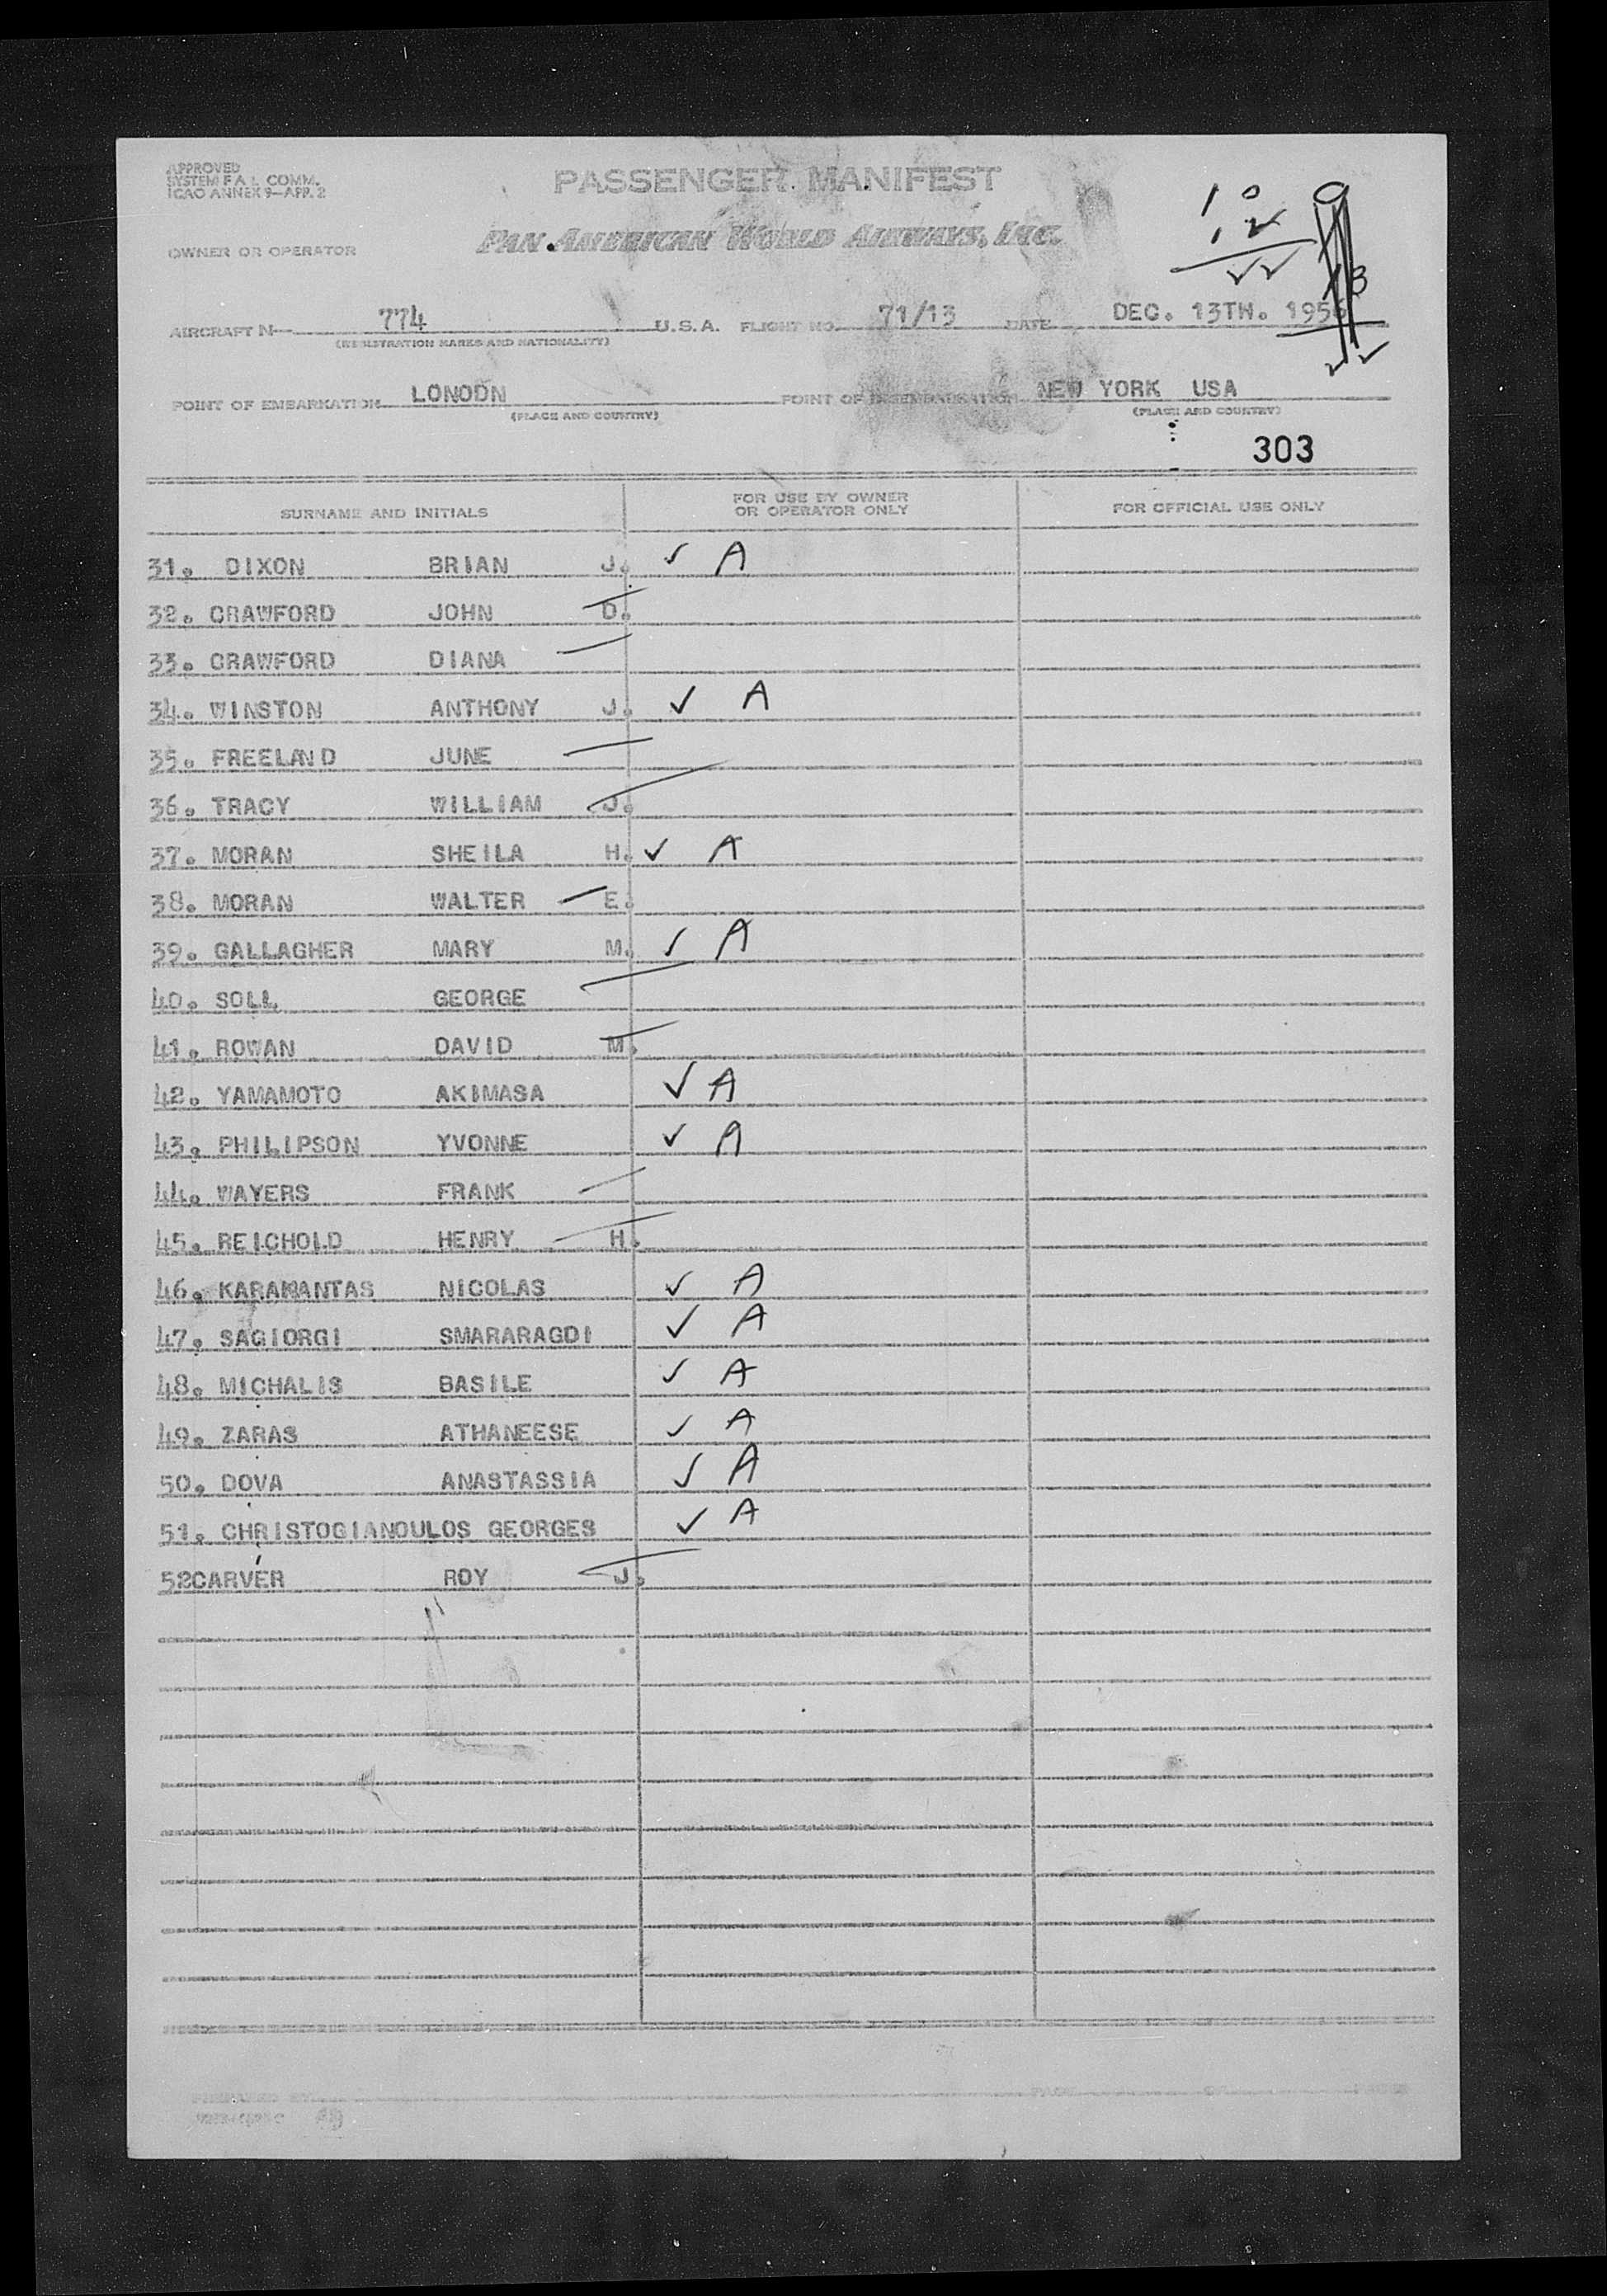 APPROVED
SYSTEM F A L COMM.
ICAO ANNEX 9—APP. 2
PASSENGER MANIFEST
OWNER OR OPERATOR PAN AMERICAN WORLD AIRWAYS, INC.
AIRCRAFT N— 774 U.S.A. FLIGHT NO. 71/13 DATE DEC. 13TH. 1956
(REGISTRATION MARKS AND NATIONALITY)
POINT OF EMBARKATION LONODN POINT OF DISEMBARKATION NEW YORK USA
(PLACE AND COUNTRY) (PLACE AND COUNTRY)
303
SURNAME AND INITIALS FOR USE BY OWNER OR OPERATOR ONLY FOR OFFICIAL USE ONLY
31. DIXON BRIAN J. ✓ A
32. CRAWFORD JOHN D.
33. CRAWFORD DIANA
34. WINSTON ANTHONY J. ✓ A
35. FREELAND JUNE
36. TRACY WILLIAM J.
37. MORAN SHEILA H. ✓ A
38. MORAN WALTER E.
39. GALLAGHER MARY M. ✓ A
40. SOLL GEORGE
41. ROWAN DAVID M.
42. YAMAMOTO AKIMASA ✓ A
43. PHILIPSON YVONNE ✓ A
44. WAYERS FRANK
45. REICHOLD HENRY H.
46. KARAMANTAS NICOLAS ✓ A
47. SAGIORGI SMARARAGDI ✓ A
48. MICHALIS BASILE ✓ A
49. ZARAS ATHANEESE ✓ A
50. DOVA ANASTASSIA ✓ A
51. CHRISTOGIANOULOS GEORGES ✓ A
52CARVER ROY J.
PREPARED BY PAGE OF PAGES